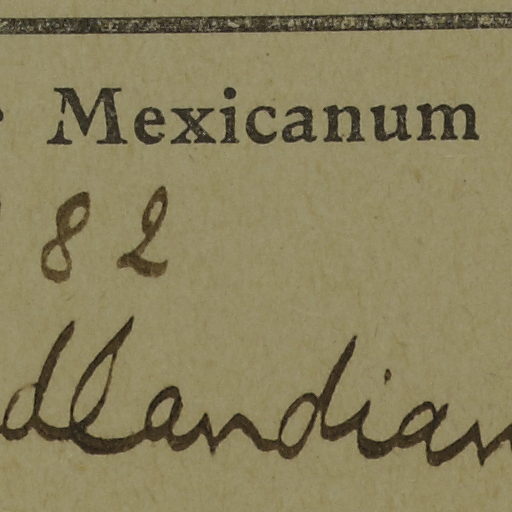 Mexicanum
82
dlandian